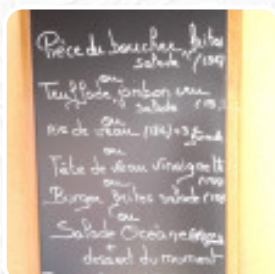 Pièce du boucher, frites
salade
ou
Truffade, jambon cru
salade
ou
de veau
ou
Tête de veau vinaigrette
ou
Burger frites salade
ou
Salade Océane
+
dessert du moment